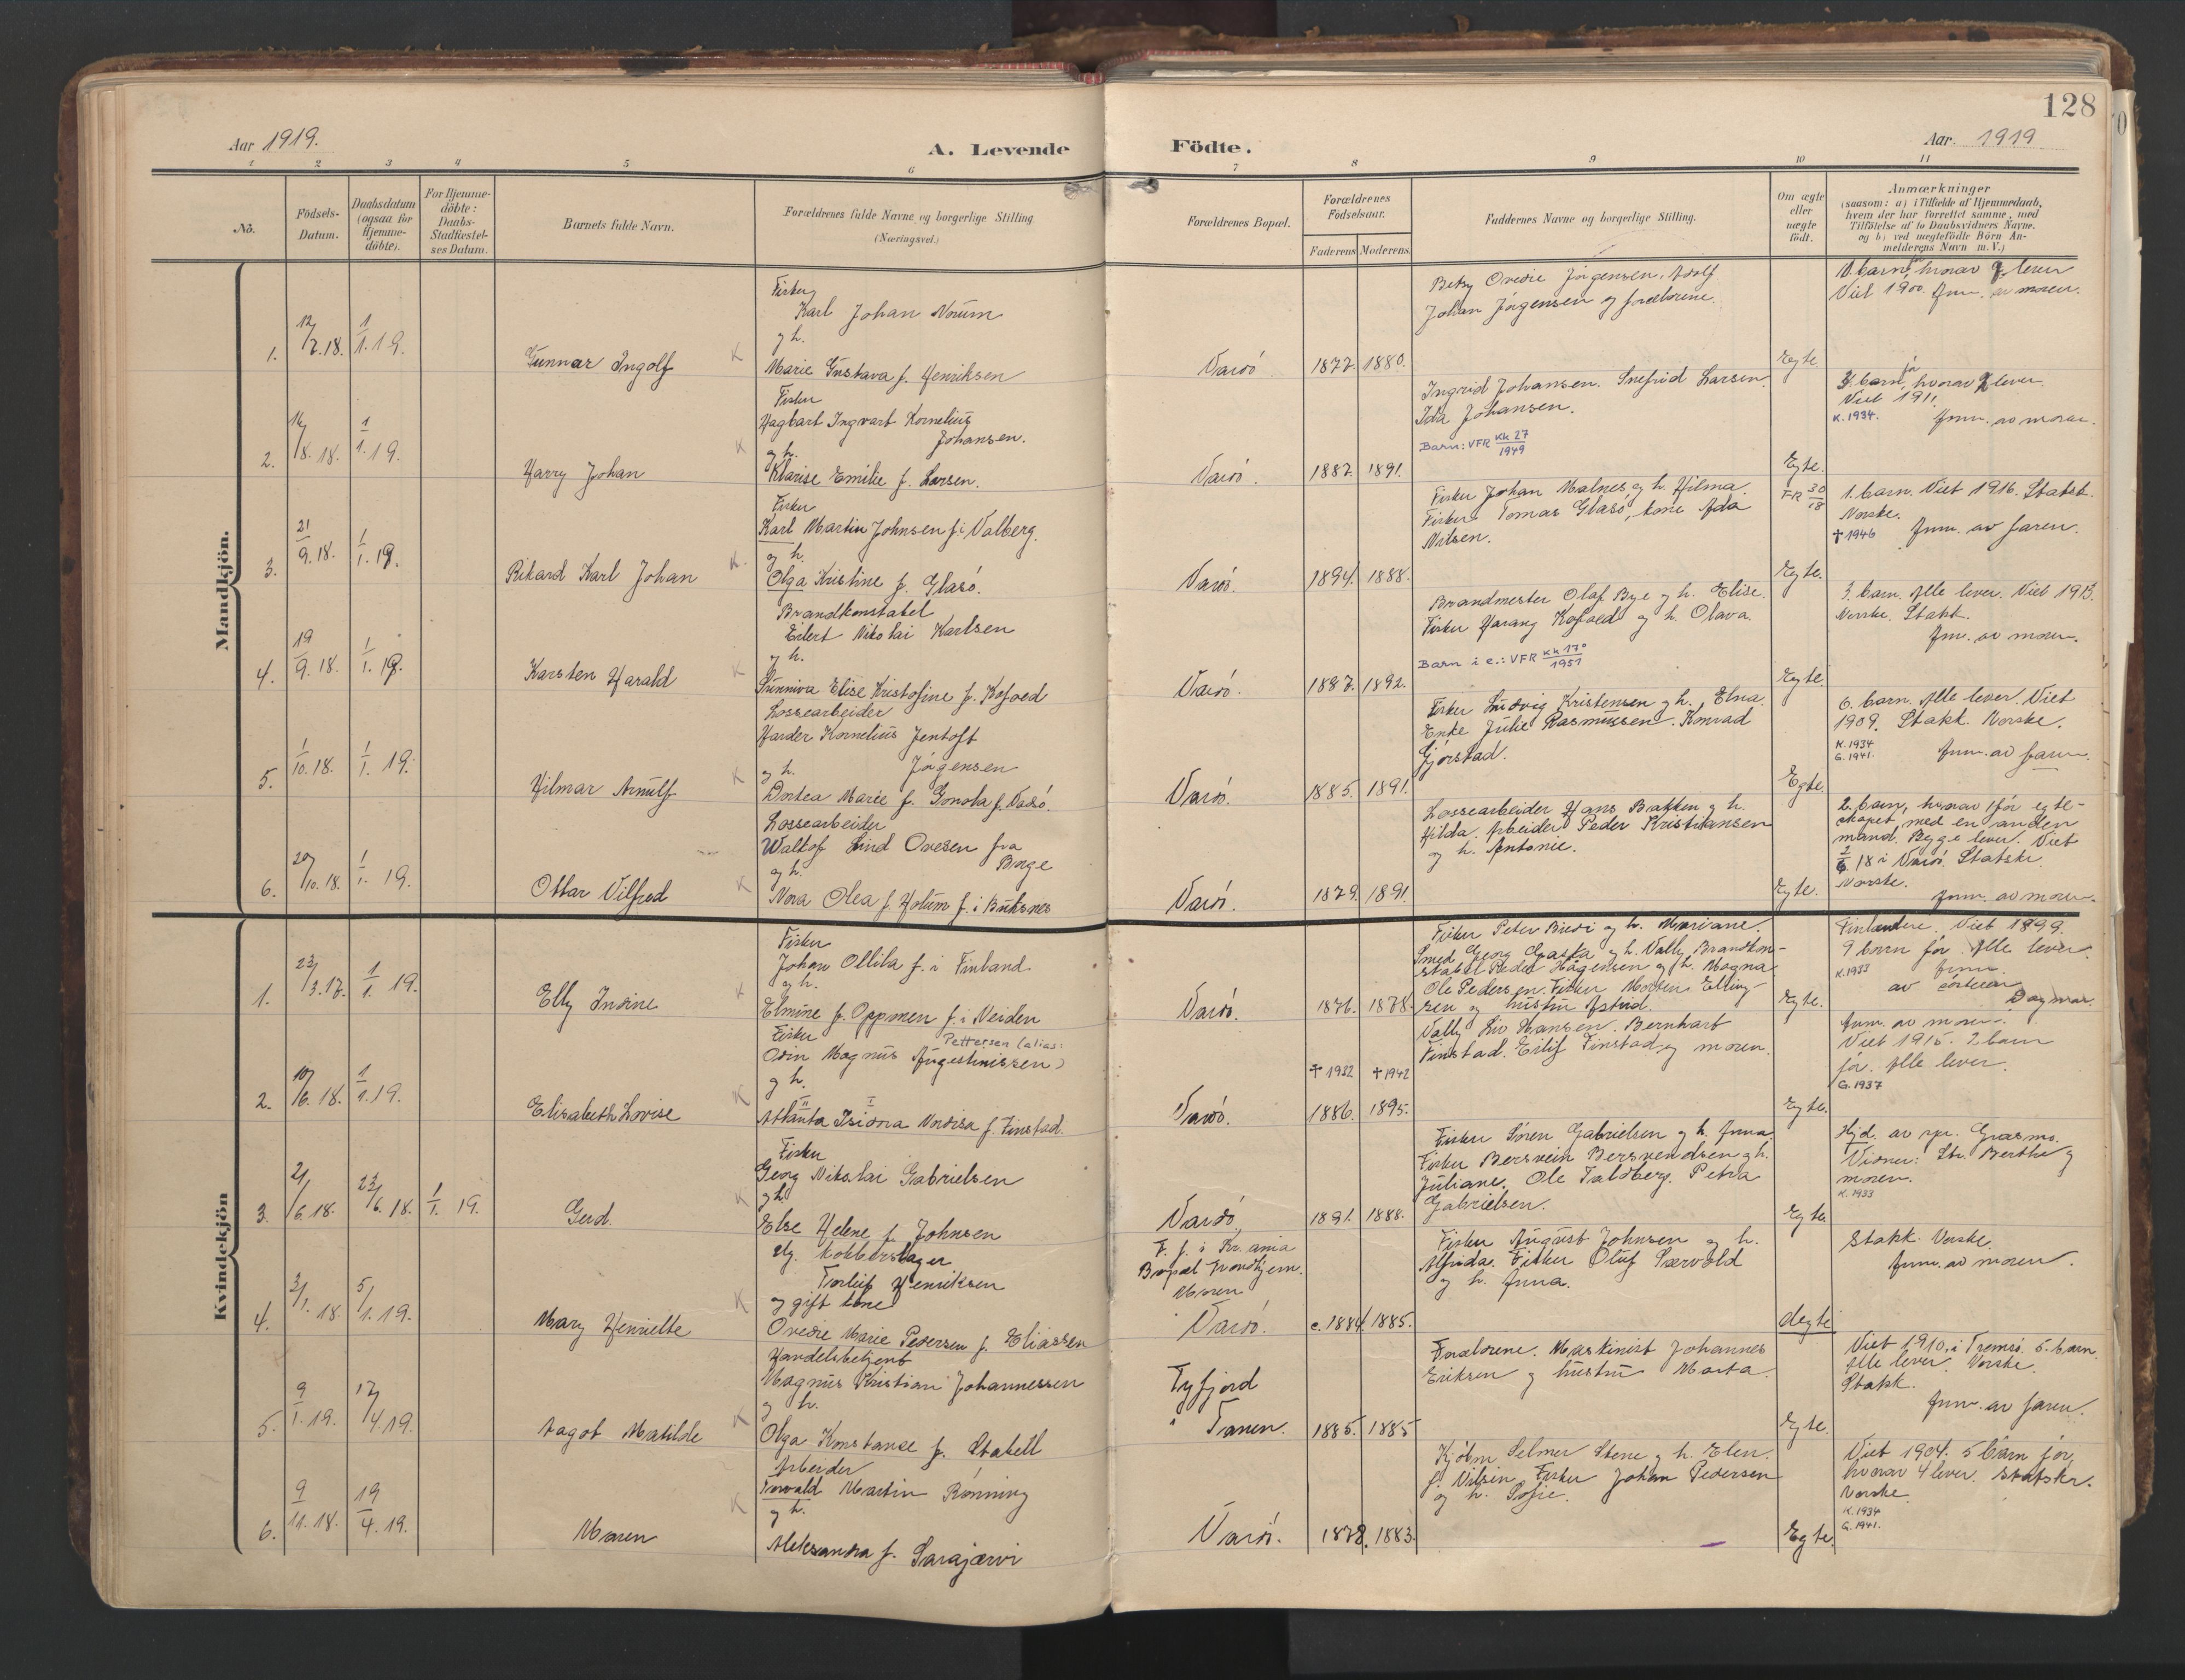 128
Aar 1919.
A. Levende Födte.
Aar. 1919
1 2 3 4 5 6 7 8 9 10 11
No.
Födsels-
Datum.
Daabsdatum
(ogsaa for
Hjemme-
döbte).
For Hjemme-
döbte:
Daabs-
Stadfæstel-
ses Datum.
Barnets fulde Navn.
Forældrenes fulde Navne og borgerlige Stilling
(Næringsvei.)
Forældrenes Bopæl.
Forældrenes
Födselsaar.
Faderens Moderens
Faddernes Navne og borgerlige Stilling.
Om ægte
eller
uægte
födt.
Anmærkninger
(saasom: a) i Tilfælde af Hjemmedaab,
hvem der har forrettet samme, med
Tilföielse af to Daabsvidners Navne.
og b) ved uægtefödte Börn An-
melderens Navn m. V.)
Mandkjön.
1.
12/7.18.
1/1.19.
Gunnar Ingolf
K
Fisker
Karl Johan Norum
og h.
Marie Gustava f. Henriksen
Vardö
1877. 1880.
Betsy Ovedie Jörgensen. Adolf
Johan Jörgensen og forældrene.
Egte
10. barn, hvorav 9 lever
Viet 1900. Anm. av moren.
2.
14/8.18.
1/1.19.
Harry Johan
K
Fisker
Hagbart Ingvart Kornelius
Johansen.
og h.
Klarise Emilie f. Larsen.
Vardö.
1887. 1891.
Ingrid Johansen. Snefrid Larsen
Ida Johansen.
Barn: VFR Kk 27/1949
Egte.
3. barn för, hvorav 2 lever.
Viet 1911.
K. 1934.
Anm. av moren.
3.
21/9.18.
1/1.19.
Rikard Karl Johan
K.
Fisker
Karl Martin Johnsen f. i Valberg.
og h.
Olga Kristine f. Glasö.
Vardö.
1894. 1888.
Fisker Johan Malnes og h. Hilma.
Fisker Tomas Glasö, kone Ada
Nilsen.
FR 30/18
Egte.
1. barn. Viet 1916. Statsk.
Norske.
† 1946
Anm. av faren.
4.
19/9.18.
1/1.19.
Karsten Harald
K
Brandkonstabel
Eilert Nikolai Karlsen
og h.
Sunniva Elise Kristofine f. Kofoed
Vardö.
1887. 1892.
Brandmester Olaf Bye og h. Elise.
Fisker Harang Kofoed og h. Olava.
Barn i e.: VFR Kk 170/1951
Egte.
3. barn. Alle lever. Viet 1913.
Norske. Statsk.
Anm. av moren.
5.
1/10.18.
1/1.19.
Hilmar Arnulf
K
Lossearbeider
Harder Kornelius Jentoft
og h. Jörgensen
Dortea Marie f. Gonola f. Vadsö.
Vardö.
1885. 1891.
Fisker Ludvig Kristensen og h. Elna.
Enke Julie Rasmussen. Konrad
Gjörstad.
Egte.
6. barn. Alle lever. Viet
1909. Statsk. Norske.
K. 1934
G. 1941.
Anm. av faren.
6.
20/10.18.
1/1.19.
Ottar Vilfred
K
Lossearbeider
Waltof Lund Ovesen fra
og h. Borge
Nora Olea f. Holum f. i Buksnes
Vardö.
1879. 1891.
Lossearbeider Hans Bakken og h.
Hilda. Arbeider Peder Kristiansen
og h. Antonie.
Egte.
2. barn, hvorav 1 för egte-
skapet med en anden
mand. Begge lever. Viet
2/6 18 i Vardö. Statsk.
Norske.
Anm. av moren.
Kvindekjön
1.
23/3.17.
1/1.19.
Elly Indine
K
Fisker
Johan Ollila f. i Finland
og h.
Elmine f. Opponen f. i Neiden
Vardö.
1876. 1878.
Fisker Peter Biedi og h. Mariane.
Smed Georg Gaska og h. Vally. Brandkon-
stabel Peder Hågensen og h. Magna
Ole Pedersen. Fisker Morten Elling-
sen og hustru Astrid.
Egte.
Finlendere. Viet 1899.
9 barn för. Alle lever.
K. 1933
Anm.
av
Dagmar.
2.
10/6.18.
1/1.19.
Elisabeth Lovise
K
Fisker
Pettersen (alias:
Odin Magnus Augustinissen)
og h.
II I
Atlanta Isidora Nordisa f. Finstad.
Vardö.
† 1932 † 1942
1886. 1895.
Vally Liv Hansen. Bernhart
Finstad. Eilif Finstad og moren.
Egte.
Anm. av moren.
Viet 1915. 2 barn
för. Alle lever.
G. 1937
3.
21/6.18.
23/6.18.
1/1.19.
Gerd.
K
Fisker
Georg Nikolai Gabrielsen
og h.
Else Helene f. Johnsen
Vardö.
1891. 1888.
Fisker Sören Gabrielsen og h. Anna.
Fisker Bersvein Bersvendsen og h.
Juliane. Ole Taldberg. Petra
Gabrielsen.
Egte
Hjd. av spr. Græsmo.
Vidner: Str. Berthe og
moren.
K. 1933
4.
3/1.18.
5/1.19.
Mary Henriette
K
Ug. kobberslager
Torleif Henriksen
og gift kone
Ovedie Marie Pedersen f. Eliassen
F. f. i Kr.ania
Bopæl Trondhjem.
Moren
Vardö.
c. 1884. 1885.
Fisker August Johnsen og h.
Alfrida. Fisker Oluf Særvold
og h. Anna.
Uegte
Statsk. Norske
Anm. av moren.
5.
9/1.19.
17/4.19.
Aagot Matilde
K
Handelsbetjent
Magnus Kristian Johannessen
og h.
Olga Konstance f. Stabell
Fyfjord
i Tanen.
1885. 1885
Forældrene. Maskinist Johannes
Eriksen og hustru Marta.
Egte.
Viet 1910, i Tromsö. 5. barn.
Alle lever. Norske.
Statsk.
Anm. av faren.
6.
9/11.18.
19/4.19.
Maren
K
Arbeider
Torvald Martin Rönning
og h.
Aleksandra f. Sarajærvi
Vardö.
1878. 1883.
Kjöbm Selmer Stene og h. Elen.
f. Nilsin. Fisker Johan Pedersen
og h. Sofie.
Egte.
Viet 1904. 5 barn för,
hvorav 4 lever. Statskr.
Norske
K. 1934
G. 1941.